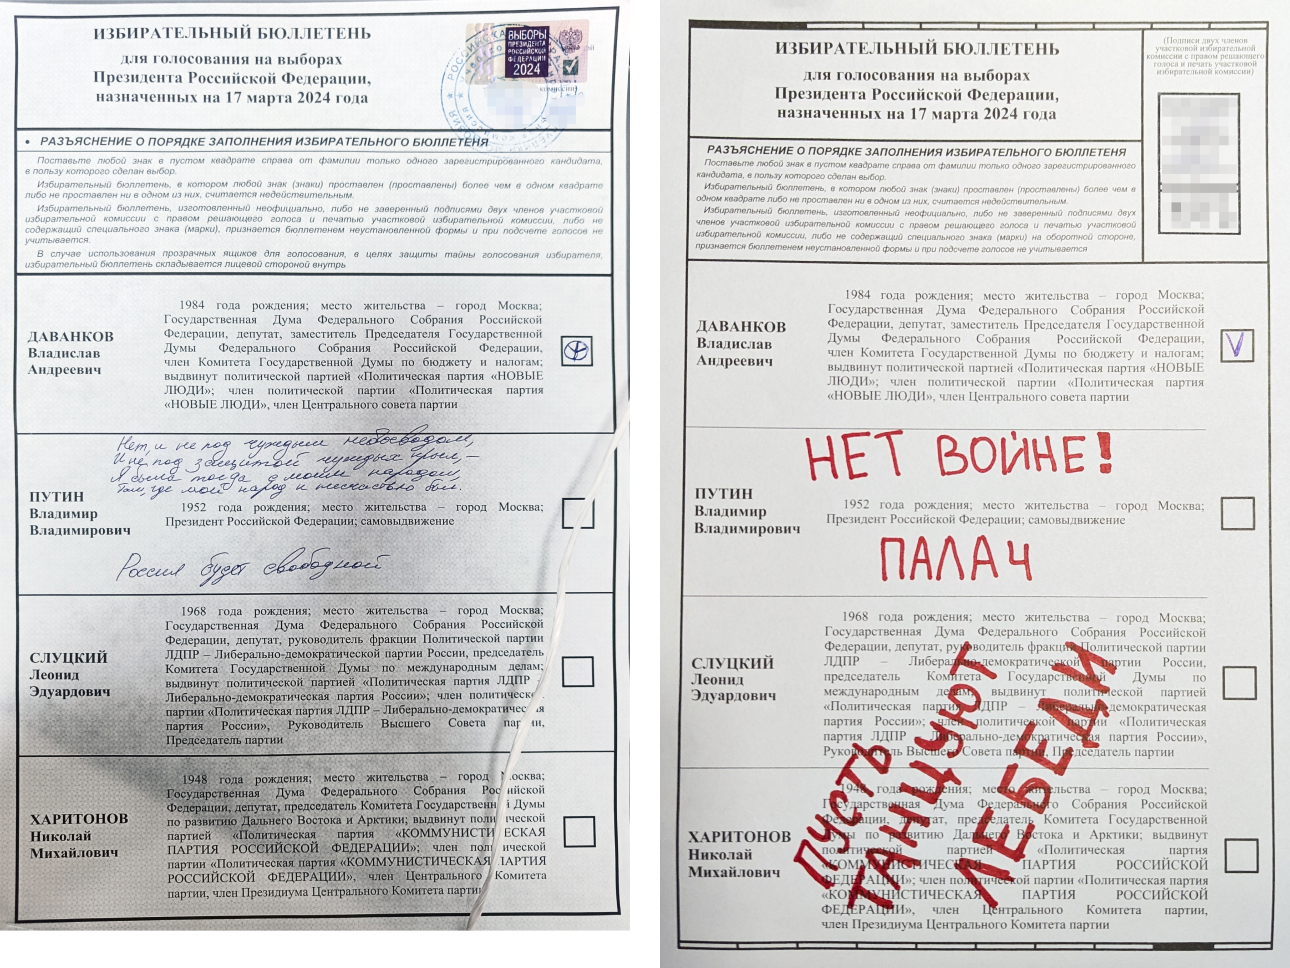 ИЗБИРАТЕЛЬНЫЙ БЮЛЛЕТЕНЬ
для голосования на выборах
Президента Российской Федерации,
назначенных на 17 марта 2024 года
ВЫБОРЫ
ПРЕЗИДЕНТА
РОССИЙСКОЙ
ФЕДЕРАЦИИ
2024
• РАЗЪЯСНЕНИЕ О ПОРЯДКЕ ЗАПОЛНЕНИЯ ИЗБИРАТЕЛЬНОГО БЮЛЛЕТЕНЯ
Поставьте любой знак в пустом квадрате справа от фамилии только одного зарегистрированного кандидата,
в пользу которого сделан выбор.
Избирательный бюллетень, в котором любой знак (знаки) проставлен (проставлены) более чем в одном квадрате
либо не проставлен ни в одном из них, считается недействительным.
Избирательный бюллетень, изготовленный неофициально, либо не заверенный подписями двух членов участковой
избирательной комиссии с правом решающего голоса и печатью участковой избирательной комиссии, либо не
содержащий специального знака (марки), признается бюллетенем неустановленной формы и при подсчете голосов не
учитывается.
В случае использования прозрачных ящиков для голосования, в целях защиты тайны голосования избирателя,
избирательный бюллетень складывается лицевой стороной внутрь
ДАВАНКОВ
Владислав
Андреевич
1984 года рождения; место жительства – город Москва;
Государственная Дума Федерального Собрания Российской
Федерации, депутат, заместитель Председателя Государственной
Думы Федерального Собрания Российской Федерации,
член Комитета Государственной Думы по бюджету и налогам;
выдвинут политической партией «Политическая партия «НОВЫЕ
ЛЮДИ»; член политической партии «Политическая партия
«НОВЫЕ ЛЮДИ», член Центрального совета партии
Нет, и не под чуждым небосводом,
И не под защитой чуждых крыл, –
Я была тогда с моим народом,
Там, где мой народ к несчастью был.
ПУТИН
Владимир
Владимирович
1952 года рождения; место жительства – город Москва;
Президент Российской Федерации; самовыдвижение
Россия будет свободной
СЛУЦКИЙ
Леонид
Эдуардович
1968 года рождения; место жительства – город Москва;
Государственная Дума Федерального Собрания Российской
Федерации, депутат, руководитель фракции Политической партии
ЛДПР – Либерально-демократической партии России, председатель
Комитета Государственной Думы по международным делам;
выдвинут политической партией «Политическая партия ЛДПР –
Либерально-демократическая партия России»; член политической
партии «Политическая партия ЛДПР – Либерально-демократическая
партия России», Руководитель Высшего Совета партии,
Председатель партии
ХАРИТОНОВ
Николай
Михайлович
1948 года рождения; место жительства – город Москва;
Государственная Дума Федерального Собрания Российской
Федерации, депутат, председатель Комитета Государственной Думы
по развитию Дальнего Востока и Арктики; выдвинут политической
партией «Политическая партия «КОММУНИСТИЧЕСКАЯ
ПАРТИЯ РОССИЙСКОЙ ФЕДЕРАЦИИ»; член политической
партии «Политическая партия «КОММУНИСТИЧЕСКАЯ ПАРТИЯ
РОССИЙСКОЙ ФЕДЕРАЦИИ», член Центрального Комитета
партии, член Президиума Центрального Комитета партии
ИЗБИРАТЕЛЬНЫЙ БЮЛЛЕТЕНЬ
для голосования на выборах
Президента Российской Федерации,
назначенных на 17 марта 2024 года
(Подписи двух членов
участковой избирательной
комиссии с правом решающего
голоса и печать участковой
избирательной комиссии)
РАЗЪЯСНЕНИЕ О ПОРЯДКЕ ЗАПОЛНЕНИЯ ИЗБИРАТЕЛЬНОГО БЮЛЛЕТЕНЯ
Поставьте любой знак в пустом квадрате справа от фамилии только одного зарегистрированного
кандидата, в пользу которого сделан выбор.
Избирательный бюллетень, в котором любой знак (знаки) проставлен (проставлены) более чем в
одном квадрате либо не проставлен ни в одном из них, считается недействительным.
Избирательный бюллетень, изготовленный неофициально, либо не заверенный подписями двух
членов участковой избирательной комиссии с правом решающего голоса и печатью участковой
избирательной комиссии, либо не содержащий специального знака (марки) на оборотной стороне,
признается бюллетенем неустановленной формы и при подсчете голосов не учитывается
ДАВАНКОВ
Владислав
Андреевич
1984 года рождения; место жительства – город Москва;
Государственная Дума Федерального Собрания Российской
Федерации, депутат, заместитель Председателя Государственной
Думы Федерального Собрания Российской Федерации,
член Комитета Государственной Думы по бюджету и налогам;
выдвинут политической партией «Политическая партия «НОВЫЕ
ЛЮДИ»; член политической партии «Политическая партия
«НОВЫЕ ЛЮДИ», член Центрального совета партии
V
НЕТ ВОЙНЕ!
ПУТИН
Владимир
Владимирович
1952 года рождения; место жительства – город Москва;
Президент Российской Федерации; самовыдвижение
ПАЛАЧ
СЛУЦКИЙ
Леонид
Эдуардович
1968 года рождения; место жительства – город Москва;
Государственная Дума Федерального Собрания Российской
Федерации, депутат, руководитель фракции Политической партии
ЛДПР – Либерально-демократической партии России,
председатель Комитета Государственной Думы по
международным делам; выдвинут политической партией
«Политическая партия ЛДПР – Либерально-демократическая
партия России»; член политической партии «Политическая
партия ЛДПР – Либерально-демократическая партия России»,
Руководитель Высшего Совета партии, Председатель партии
ХАРИТОНОВ
Николай
Михайлович
1948 года рождения; место жительства – город Москва;
Государственная Дума Федерального Собрания Российской
Федерации, депутат, председатель Комитета Государственной
Думы по развитию Дальнего Востока и Арктики; выдвинут
политической партией «Политическая партия
«КОММУНИСТИЧЕСКАЯ ПАРТИЯ РОССИЙСКОЙ
ФЕДЕРАЦИИ»; член политической партии «Политическая партия
«КОММУНИСТИЧЕСКАЯ ПАРТИЯ РОССИЙСКОЙ
ФЕДЕРАЦИИ», член Центрального Комитета партии,
член Президиума Центрального Комитета партии
ПУСТЬ
ТАНЦУЮТ
ЛЕБЕДИ